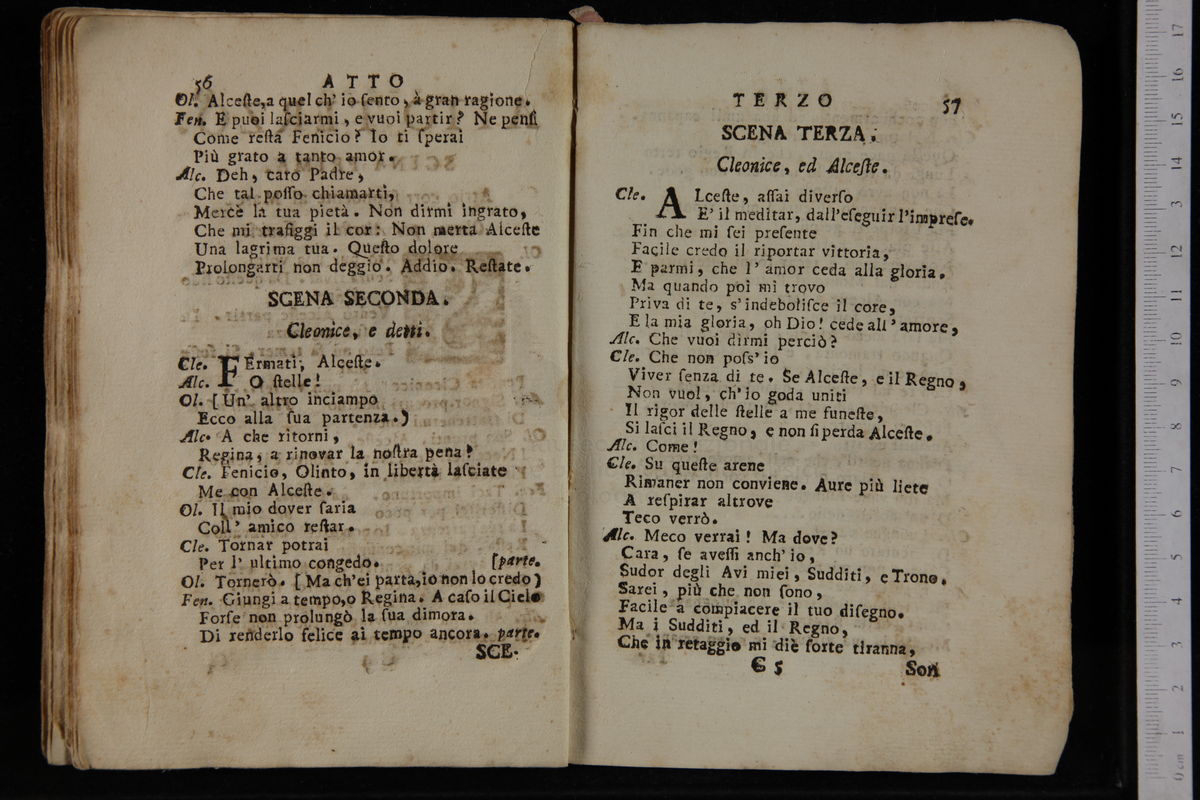 56 ATTO
Ol. Alceſte, a quel ch' io ſento, à gran ragione.
Fen. E puoi laſciarmi, e vuoi partir? Ne penſi
Come reſta Fenicio? Io ti ſperai
Più grato a tanto amor.
Alc. Deh, caro Padre,
Che tal poſſo chiamarti,
Mercè la tua pietà. Non dirmi ingrato,
Che mi trafiggi il cor: Non merta Alceſte
Una lagrima tua. Queſto dolore
Prolongarti non deggio. Addio. Reſtate.
SCENA SECONDA.
Cleonice, e detti.
Cle. FErmati, Alceſte.
Alc. O ſtelle!
Ol. [Un' altro inciampo
Ecco alla ſua partenza.)
Alc. A che ritorni,
Regina, a rinovar la noſtra pena?
Cle. Fenicio, Olinto, in libertà laſciate
Me con Alceſte.
Ol. Il mio dover ſaria
Coll' amico reſtar.
Cle. Tornar potrai
Per l' ultimo congedo. [parte.
Ol. Tornerò. [Ma ch'ei parta, io non lo credo)
Fen. Giungi a tempo, o Regina. A caſo il Cielo
Forſe non prolungò la ſua dimora.
Di renderlo felice ai tempo ancora. parte.
SCE-
TERZO 57
SCENA TERZA.
Cleonice, ed Alceſte.
Cle. ALceſte, aſſai diverſo
E' il meditar, dall'eſeguir l'impreſe.
Fin che mi ſei preſente
Facile credo il riportar vittoria,
E parmi, che l' amor ceda alla gloria.
Ma quando poi mi trovo
Priva di te, s'indeboliſce il core,
E la mia gloria, oh Dio! cede all' amore,
Alc. Che vuoi dirmi perciò?
Cle. Che non poſs' io
Viver ſenza di te. Se Alceſte, e il Regno,
Non vuol, ch' io goda uniti
Il rigor delle ſtelle a me funeſte,
Si laſci il Regno, e non ſi perda Alceſte.
Alc. Come!
Cle. Su queſte arene
Rimaner non conviene. Aure più liete
A reſpirar altrove
Teco verrò.
Alc. Meco verrai! Ma dove?
Cara, ſe aveſſi anch' io,
Sudor degli Avi miei, Sudditi, e Trono.
Sarei, più che non ſono,
Facile a compiacere il tuo diſegno.
Ma i Sudditi, ed il Regno,
Che in retaggio mi diè ſorte tiranna,
C 5 Son
17
16
15
14
13
12
11
10
9
8
7
6
5
4
3
2
1
0 cm